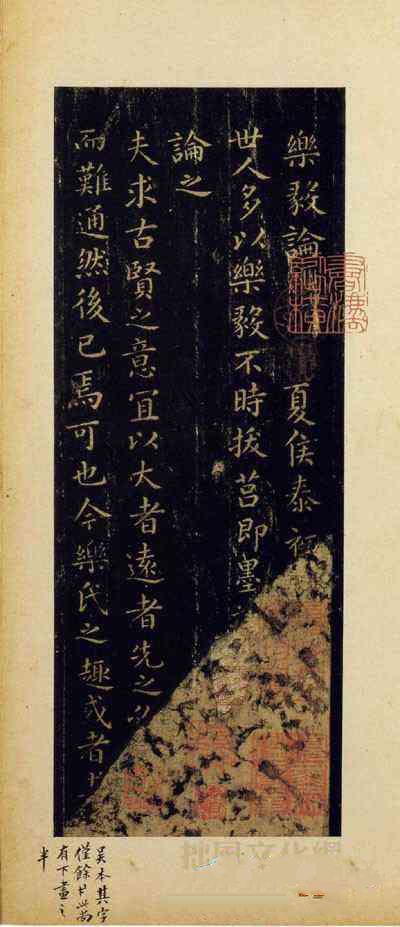 樂毅論 夏侯泰初
世人多以樂毅不時拔莒即墨
論之
夫求古賢之意宜以大者遠者先之必
而難通然後已焉可也今樂氏之趣或者
吳本其字
僅餘 此尚
有下畫之
半
拙風文化網